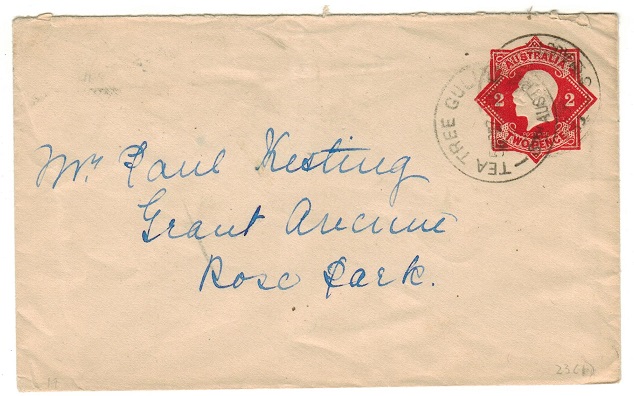 AUSTRALIA
2 2
POSTAGE
TWO PENCE
TEA TREE GULLY
Mr. Paul Kesting
Grant Avenue
Rose Park.
17